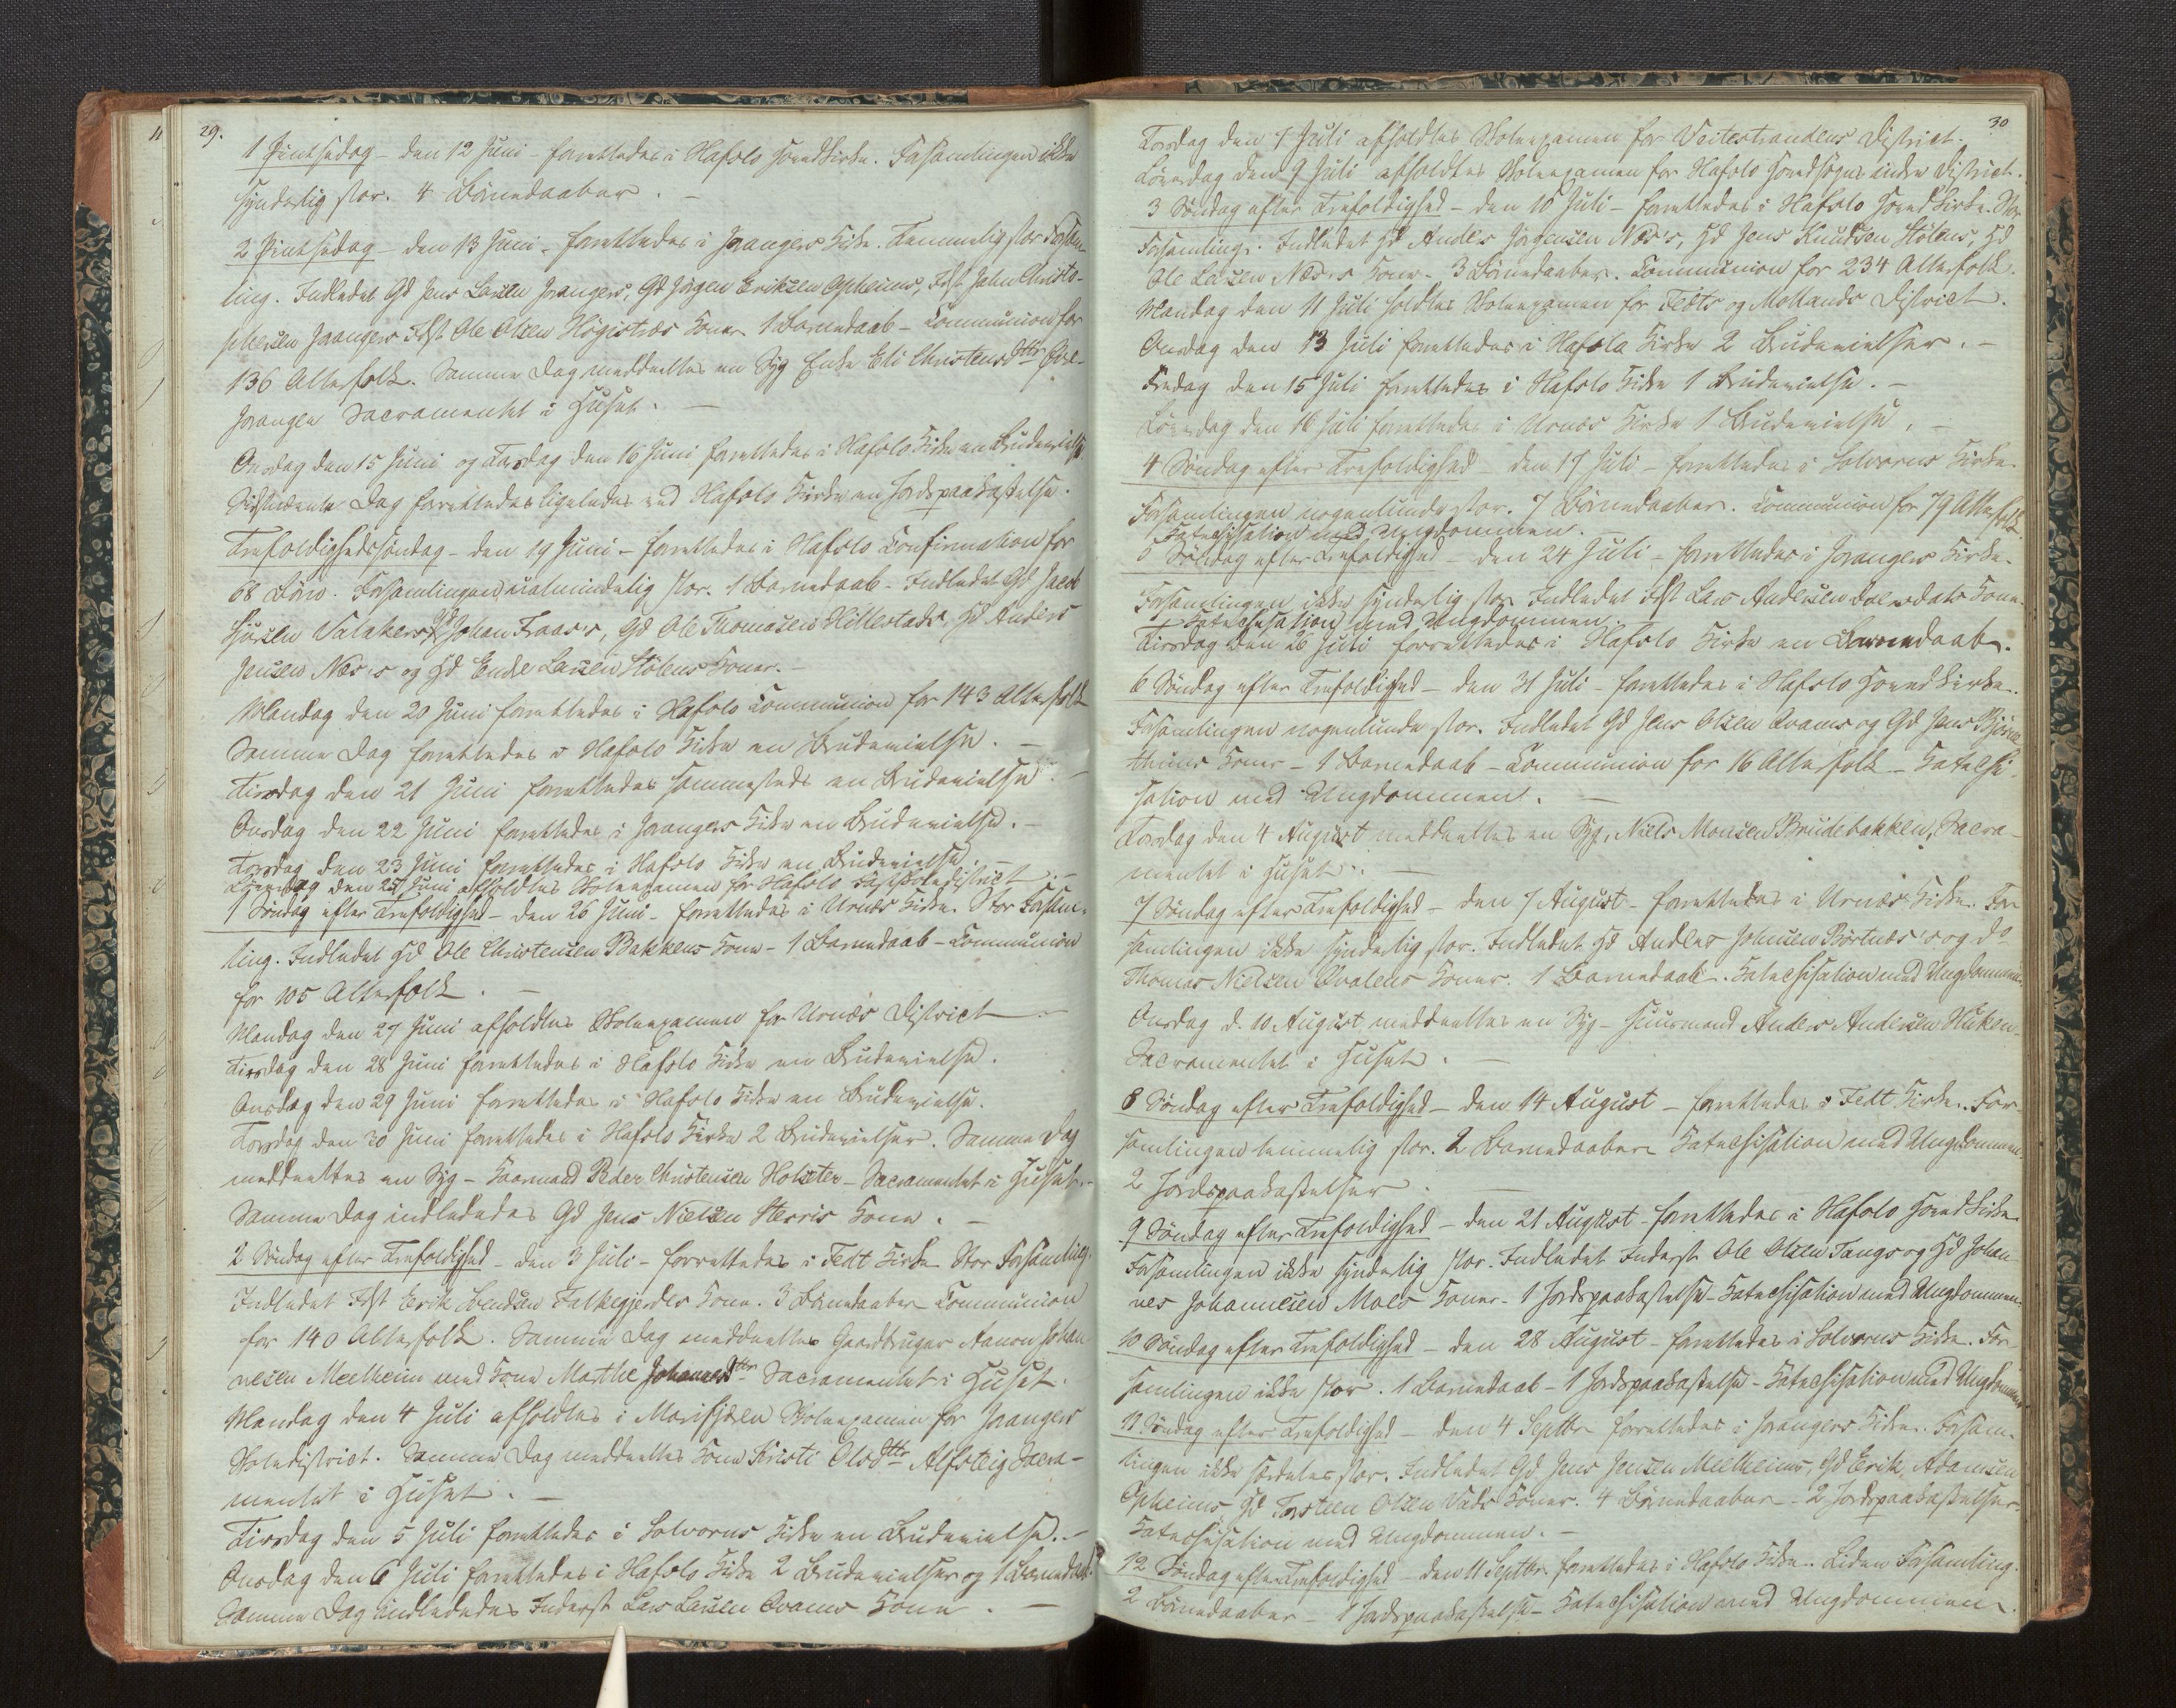 29.
1 Pintsedag - den 12 Juni - forrettedes i Hafslo Hovedkirke. Forsamlingen ikke
synderlig stor. 4 Børnedaaber. -
2 Pintsedag - den 13 Juni - forrettedes i Joranger Kirke. Temmelig stor Forsam-
ling. Indledet Gd Jens Larsen Jorangers, Gd Jørgen Eriksen Opheims, Fdst John Christo-
phersen Jorangers Fdst Ole Olsen Høgistræs Koner 1 Barnedaab - Communion for
136 Altersfolk. Samme Dag meddeeltes en Syg Enke Eli Christensdttr
Jorangen Sacramentet i Huset. -
Onsdag den 15 Juni og Torsdag den 16 Juni forrettedes i Hafslo Kirke en Brudevielse.
Sidstnævnte Dag forrettedes ligeledes ved Hafslo Kirke en Jordspaakastelse.
Trefoldighedssøndag - den 19 Juni - forrettedes i Hafslo Confirmation for
68 Børn. Forsamlingen ualmindelig stor. 1 Barnedaab. Indledet Gd Jacob
Sjursen Valakers, Gd Johan Fraas's, Gd Ole Thomasen Hillestads, Hd Anders
Jensen Næs's og Hd Endre Larsen Stølens Koner. -
Mandag den 20 Juni forrettedes i Hafslo Communion for 143 Altersfolk
Samme Dag forrettedes i Hafslo Kirke en Brudevielse. -
Tirsdag den 21 Juni forrettedes sammesteds en Brudevielse. -
Onsdag den 22 Juni forrettedes i Jorangers Kirke en Brudevielse. -
Torsdag den 23 Juni forrettedes i Hafslo Kirke en Brudevielse. -
Løverdag den 25 Juni afholdtes Skoleexamen for Hafslo Fastskoledistrict. -
1 Søndag efter Trefoldighed - den 26 Juni - forrettedes i Urnæs Kirke. Stor Forsam-
ling. Indledet Hd Ole Christensen Bakkens Kone - 1 Barnedaab - Communion
for 105 Altersfolk. -
Mandag den 27 Juni afholdtes Skoleexamen for Urnæs District -
Tirsdag den 28 Juni forrettedes i Hafslo Kirke en Brudevielse.
Onsdag den 29 Juni forrettedes i Hafslo Kirke en Brudevielse.
Torsdag den 30 Juni forrettedes i Hafslo Kirke 2 Brudevielser. Samme Dag
meddeeltes en Syg - Kaarmand Peder Christensen Holseter - Sacramentet i Huset. -
Samme Dag indlededes Gd Jens Nielsen Herris Kone. -
2 Søndag efter Trefoldighed - den 3 Juli - forrettedes i Fedt Kirke Stor Forsamling.
Indledet Fdst Erik Svendsen Falkegjerdes Kone. 3 Børnedaaber - Communion
for 140 Altersfolk. Samme Dag meddeeltes Gaardbruger Aamon Johan-
nesen Meelheim med Kone Marthe Johannesdttr Sacramentet i Huset.
Mandag den 4 Juli afholdtes i Marifjæren Skoleexamen for Jorangers
Skoledistrict. Samme Dag meddeeltes Kone Kristi Olsdttr Alsteig Sacra-
mentet i Huset. -
Tirsdag den 5 Juli forrettedes i Solvorns Kirke en Brudevielse. -
Onsdag den 6 Juli forrettedes i Hafslo Kirke 2 Brudevielser og 1 Barnedaab.
Samme Dag indlededes Inderst Lars Larsen Qvams Kone. -
30
Torsdag den 7 Juli afholdtes Skoleexamen for Veitestrandens District.
Løverdag den 9 Juli afholdtes Skoleexamen for Hafslo Hovedsogns indre District.
3 Søndag efter Trefoldighed - den 10 Juli - forrettedes i Hafslo Hovedkirke. Stor
Forsamling. Indledet Gd Anders Jørgensen Næs's, Hd Jens Knudsen Stølens, Hd
Ole Larsen Næs's Koner - 3 Børnedaaber. Communion for 234 Altersfolk.
Mandag den 11 Juli holdtes Skoleexamen for Fedts og Mollands District.
Onsdag den 13 Juli forrettedes i Hafslo Kirke 2 Brudevielser. -
Fredag den 15 Juli forrettedes i Hafslo Kirke 1 Brudevielse. -
Løverdag den 16 Juli forrettedes i Urnæs Kirke 1 Brudevielse. -
4 Søndag efter Trefoldighed - den 17 Juli - forrettedes i Solvorns Kirke.
Forsamlingen nogenlunde stor. 7 Børnedaaber. Communion for 79 Altersfolk.
Katechisation med Ungdommen.
5 Søndag efter Trefoldighed - den 24 Juli - forrettedes i Jorangers Kirke.
Forsamlingen ikke synderlig stor Indledet Fdst Lars Andersen Kone.
Katechisation med Ungdommen.
Tirsdag den 26 Juli forrettedes i Hafslo Kirke en Barnedaab.
6 Søndag efter Trefoldighed - den 31 Juli - forrettedes i Hafslo Hovedkirke.
Forsamlingen nogenlunde stor. Indledet Gd Jens Olsen Qvams og Gd Jens
Koner - 1 Barnedaab - Communion for 16 Altersfolk - Katechi-
sation med Ungdommen. -
Torsdag den 4 August meddeeltes en Syg, Niels Monsen Brudebakken, Sacra-
mentet i Huset. -
7 Søndag efter Trefoldighed - den 7 August - forrettedes i Urnæs Kirke. For-
samlingen ikke synderlig stor. Indledet Hd Anders Johnsen Børtnæs's og do
Thomas Nielsen Qvalens Koner. 1 Barnedaab. Katechisation med Ungdommen.
Onsdag d. 10 August meddeeltes en Syg - Huusmand Anders Andersen Huken -
Sacramentet i Huset. -
8 Søndag efter Trefoldighed - den 14 August - forrettedes i Fedt Kirke. For-
samlingen temmelig stor. 2 Børnedaaber Katechisation med Ungdommen.
2 Jordspaakastelser. -
9 Søndag efter Trefoldighed - den 21 August - forrettedes i Hafslo Hovedkirke
Forsamlingen ikke synderlig stor. Indledet Inderst Ole Olsen Tangs og Hd Johan-
nes Johannesen Moes Koner - 1 Jordspaakastelse - Katechisation med Ungdommen.
10 Søndag efter Trefoldighed - den 28 August - forrettedes i Solvorns Kirke. For-
samlingen ikke stor. 1 Barnedaab - 1 Jordspaakastelse - Katechisation med Ungdommen
11 Søndag efter Trefoldighed - den 4 Septbr forrettedes i Jorangers Kirke. Forsam-
lingen ikke særdeles stor. Indledet Gd Jens Jensen Meelheims, Gd Erik Adamsen
Opheims, Hd Torsteen Olsen Vads Koner. 4 Børnedaaber - 2 Jordspaakastelser.
Katechisation med Ungdommen. -
12 Søndag efter Trefoldighed - den 11 Septbr. forrettedes i Hafslo Kirke. Liden Forsamling.
2 Børnedaaber - 1 Jordspaakastelse - Katechisation med Ungdommen.